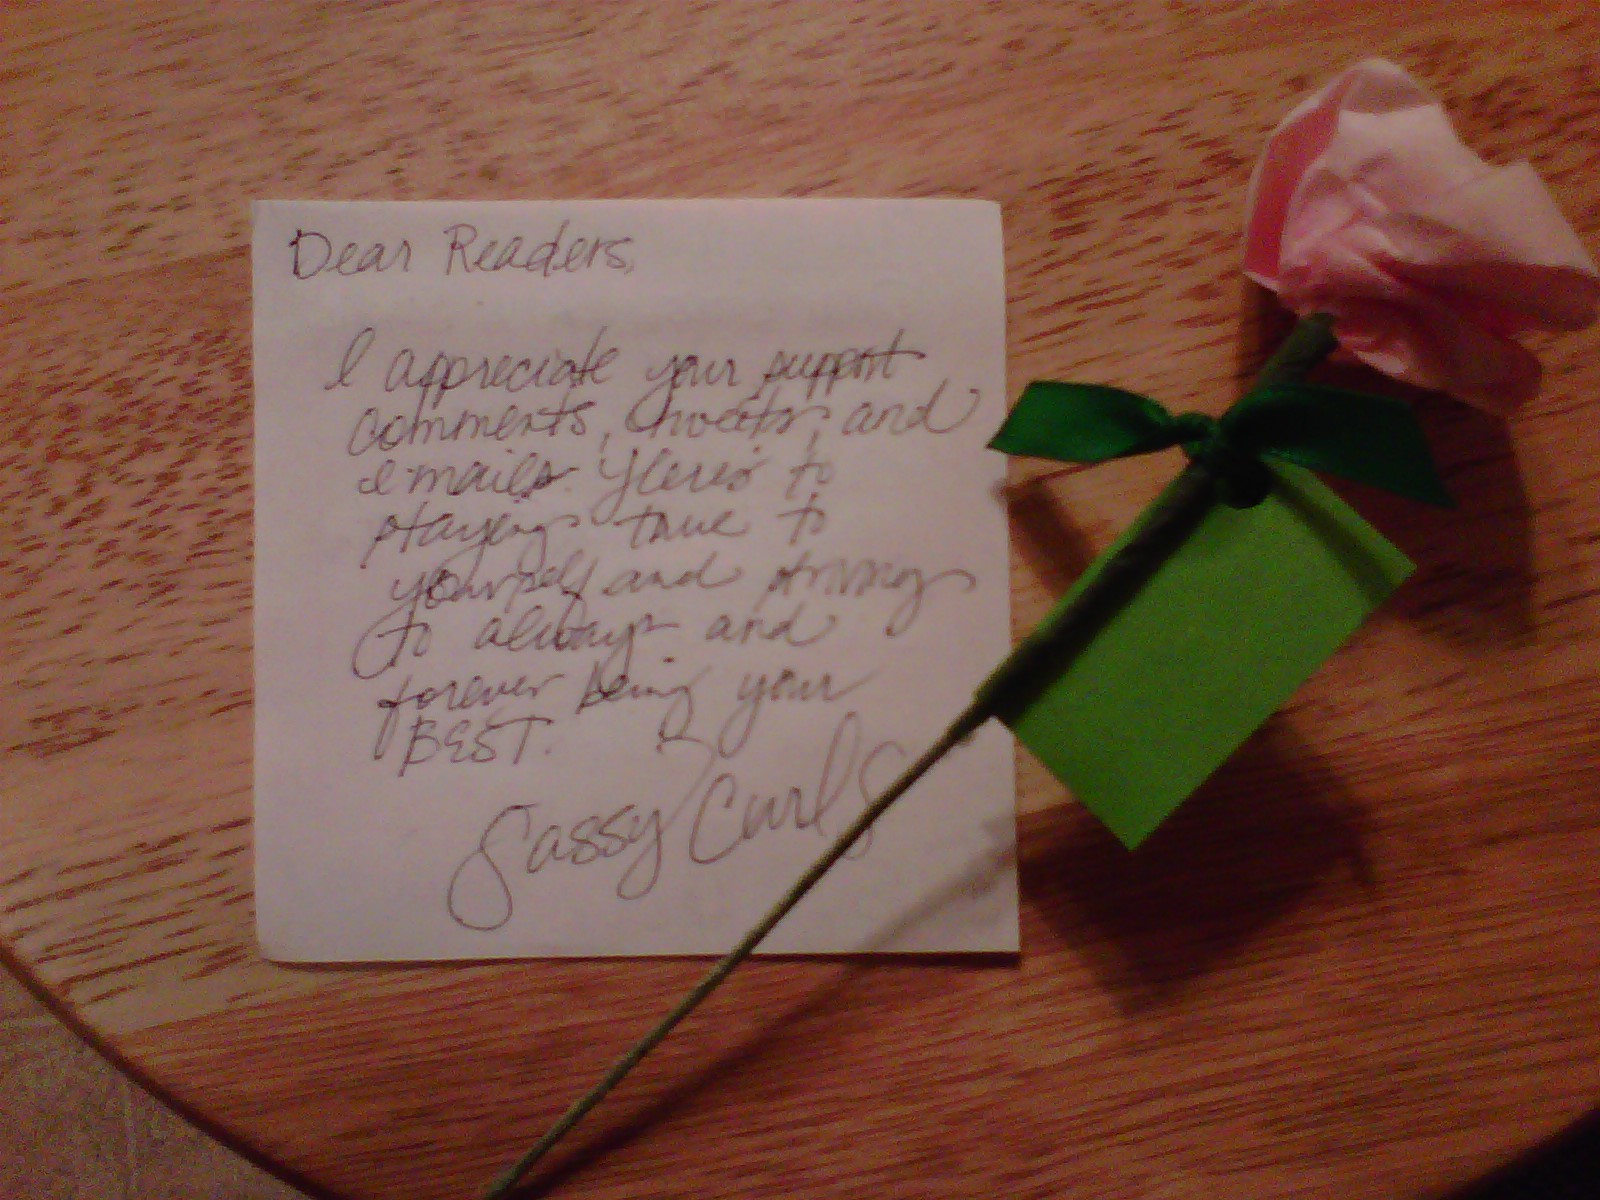 Dear Readers,
I appreciate your support
comments, tweets, and
emails. Here's to
staying true to
yourself and striving
to always and
forever being your
BEST.
Sassy Curls